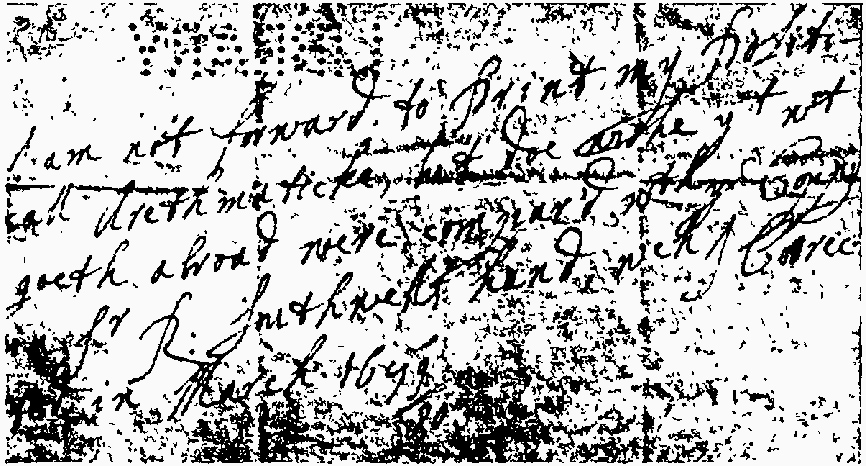 I am not forward to Print my Politi-
call Arethmaticke, but doe wishe yt not
goeth abroad were compar'd with ye Copy
Sr R: Southwells hand, wch I Correc
in March 1679/80